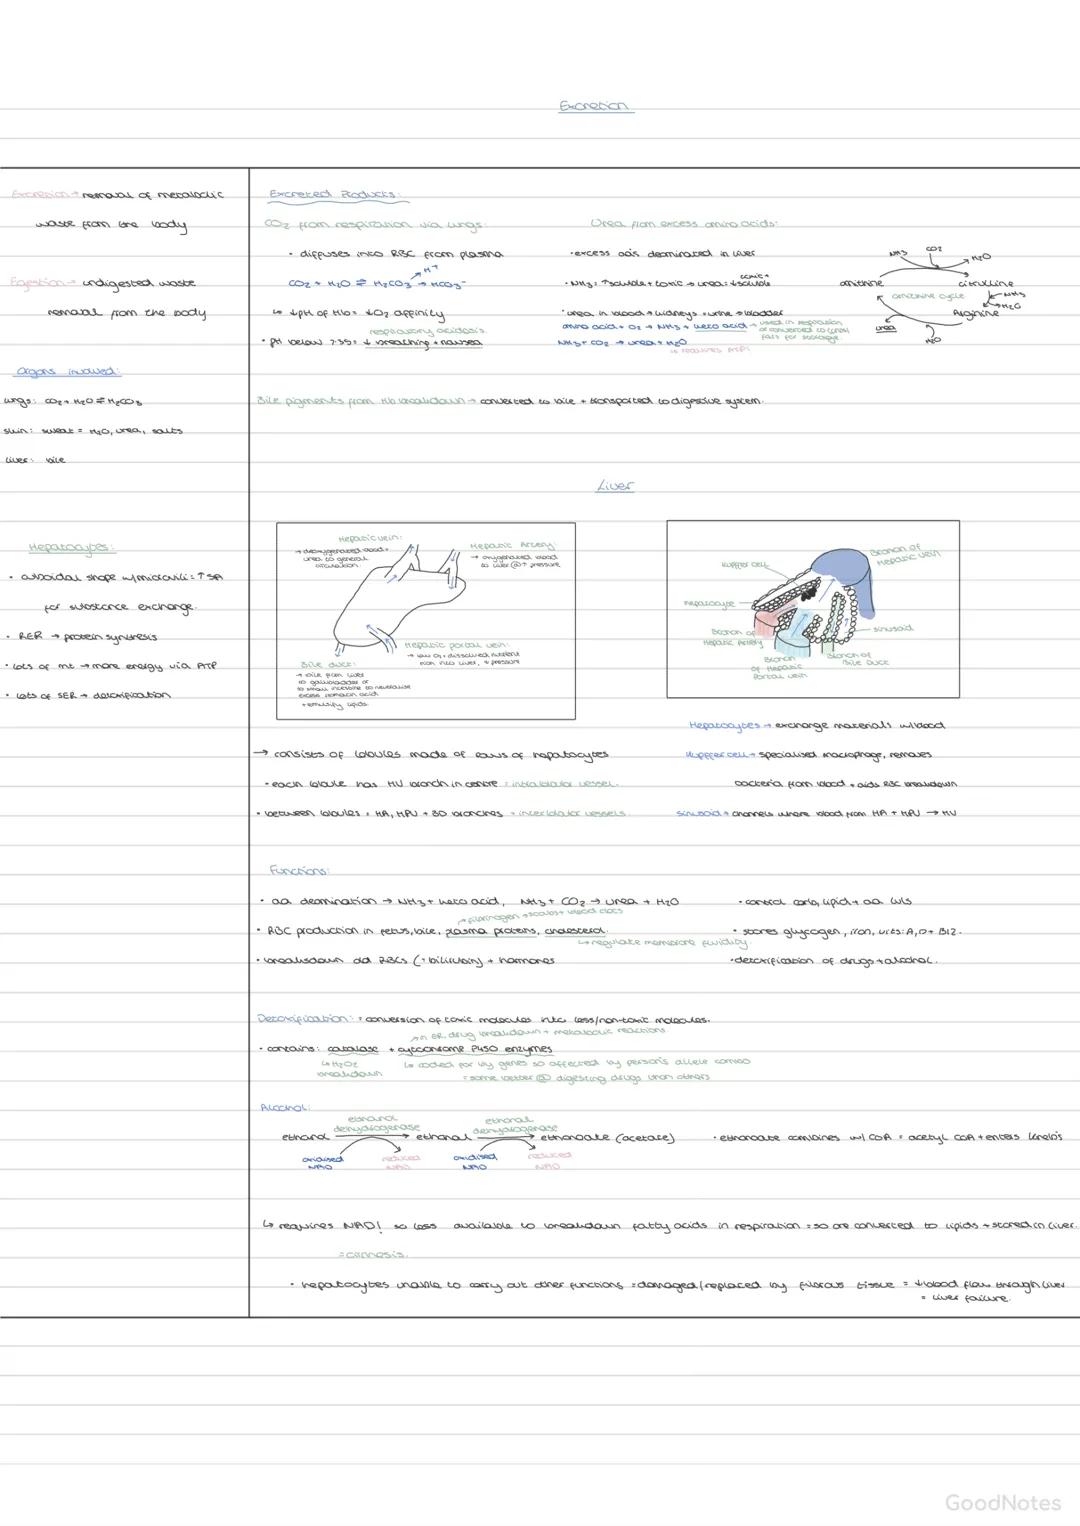 Excretion
Excretion → removal of metabolic
waste from the body
Egestion → undigested waste
removal from the body
Organs involved:
lungs: CO2 + H2O ⇌ H2CO3
skin: sweat = H2O, urea, salts
liver: bile
Hepatocytes:
• cuboidal shape w/ microvilli: ↑ SA
for substance exchange.
• RER → protein synthesis
• lots of mt → more energy via ATP
• lots of SER → detoxification
Excreted Products:
CO2 from respiration via lungs:
• diffuses into RBC from plasma
CO2 + H2O ⇌ H2CO3 → HCO3-
H+
↳ ↓pH of Hb = ↓O2 affinity
respiratory acidosis.
• pH below 7.35 = ↓ breathing + nausea
Urea from excess amino acids:
• excess aa's deaminated in liver
• NH3: ↑soluble + toxic → urea: ↓soluble
toxic +
• urea in blood → kidneys = urine → bladder
amino acid + O2 → NH3 + keto acid → used in respiration
or converted to
fats for storage.
NH3 + CO2 → urea + H2O
↳ requires ATP!
NH3
CO2
H2O
ornithine
citrulline
ornithine cycle
NH3
H2O
Arginine
urea
H2O
Bile pigments from Hb breakdown → converted to bile + transported to digestive system.
Liver
Hepatic vein:
→ deoxygenated blood +
urea to general
circulation.
Hepatic Artery:
→ oxygenated blood
to liver @ ↑ pressure
Hepatic portal vein:
→ low O2 + dissolved nutrient
rich into liver, ↓ pressure
Bile duct:
→ bile from liver
to gallbladder or
to small intestine to neutralise
excess stomach acid
+ emulsify lipids
Branch of
Hepatic vein
Kupffer cell
Hepatocyte
Branch of
Hepatic Artery
sinusoid
Branch
of Hepatic
Portal vein
Branch of
Bile Duct
→ consists of lobules made of rows of hepatocytes
• each lobule has HV branch in centre = intralobular vessel.
• between lobules = HA, HPV + BD branches = interlobular vessels.
Hepatocytes → exchange materials w/ blood
Kupffer cell → specialised macrophage, removes
bacteria from blood + aids RBC breakdown
sinusoid → channels where blood from HA + HPV → HV
Functions:
• aa deamination → NH3 + keto acid, NH3 + CO2 → urea + H2O
→ fibrinogen → soabs blood clots
• RBC production in fetus, bile, plasma proteins, cholesterol.
↳ regulate membrane fluidity.
• breakdown old RBCs (= bilirubin) + hormones
• control carb, lipid + aa lvls
• stores glycogen, iron, vits: A, D + B12.
• detoxification of drugs + alcohol.
Detoxification: = conversion of toxic molecules into less/non-toxic molecules.
→ in ER, drug breakdown + metabolic reactions
• contains: catalase + cytochrome P450 enzymes
↳ H2O2
breakdown
↳ coded for by genes so affected by person's allele combo
= some better @ digesting drugs than others
Alcohol:
ethanol
dehydrogenase
ethanal
dehydrogenase
ethanol → ethanal → ethanoate (acetate)
oxidised
NAD
reduced
NAD
oxidised
NAD
reduced
NAD
• ethanoate combines w/ CoA = acetyl CoA + enters Kreb's
↳ requires NAD! so less available to breakdown fatty acids in respiration = so are converted to lipids + stored in liver.
= cirrhosis.
• hepatocytes unable to carry out other functions = damaged/replaced by fibrous tissue = ↓blood flow through liver
= liver failure.
GoodNotes